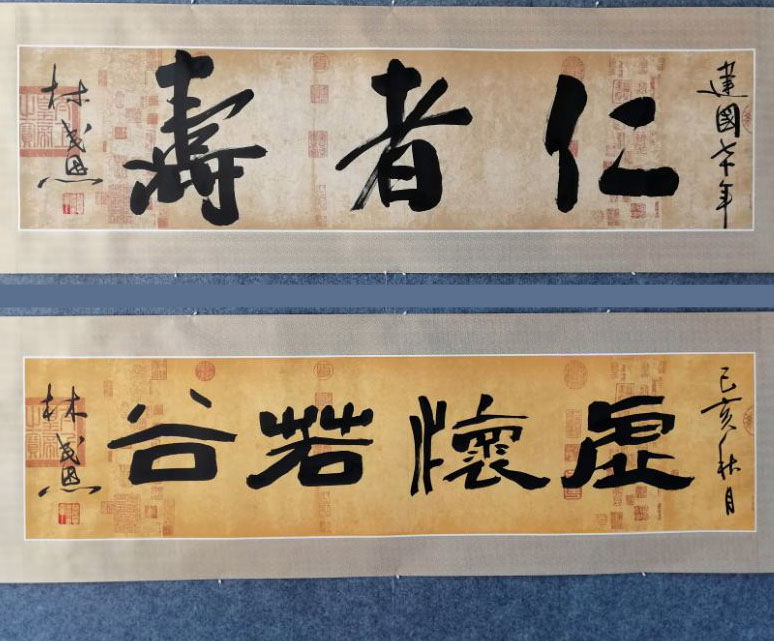 建國七十年
仁者壽
林茂恩
己亥秋月
虛懷若谷
林茂恩